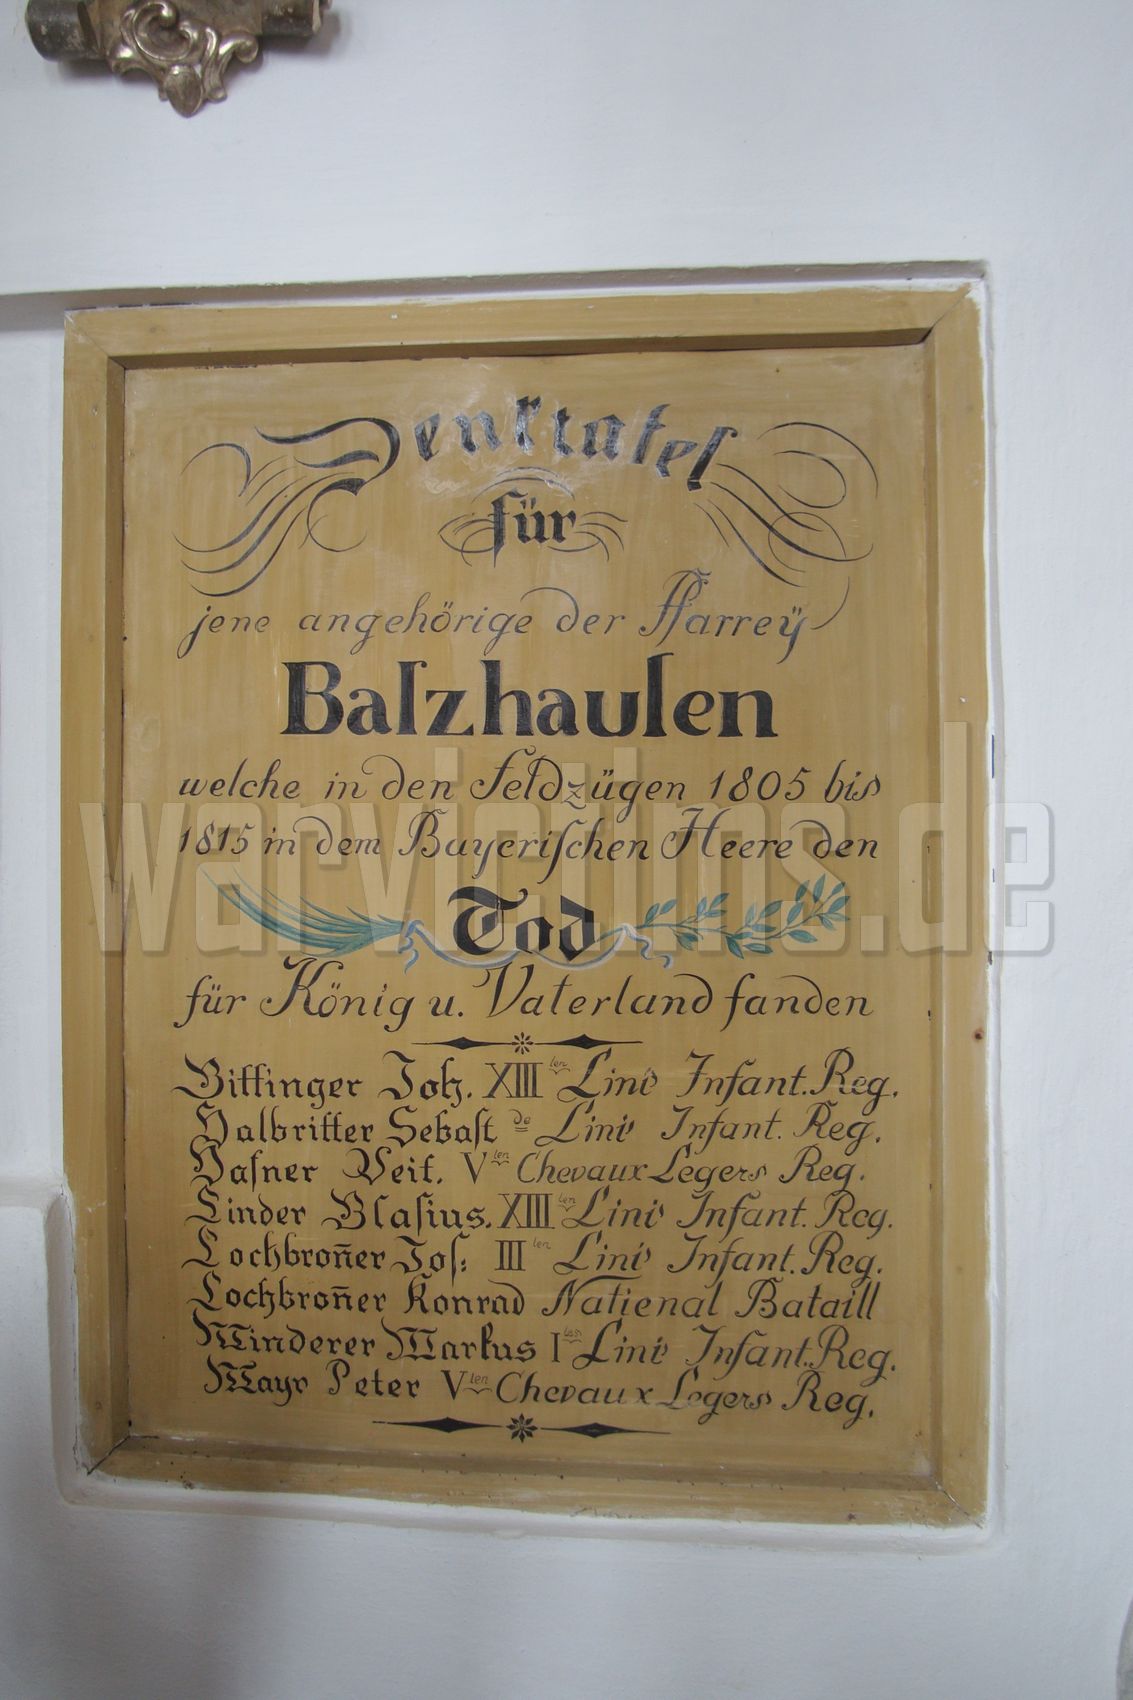 Denktafel
für
jene angehörige der Pfarreÿ
Balzhauſen
welche in den Feldzügen 1805 bis
1815 in dem Bayeriſchen Heere den
Tod
für König u. Vaterland fanden
Bittinger Joh. XIII ten Lini Infant. Reg.
Halbritter Sebaſt de Lini Infant. Reg.
Haſner Veit. V ten Chevaux Legers Reg.
Linder Blaſius. XIII ten Lini Infant. Reg.
Lochbron̄er Joſ: III ten Lini Infant. Reg.
Lochbron̄er Konrad National Bataill
Minderer Markus I ten Lini Infant. Reg.
Mayr Peter V ten Chevaux Legers Reg.
warvictims.de